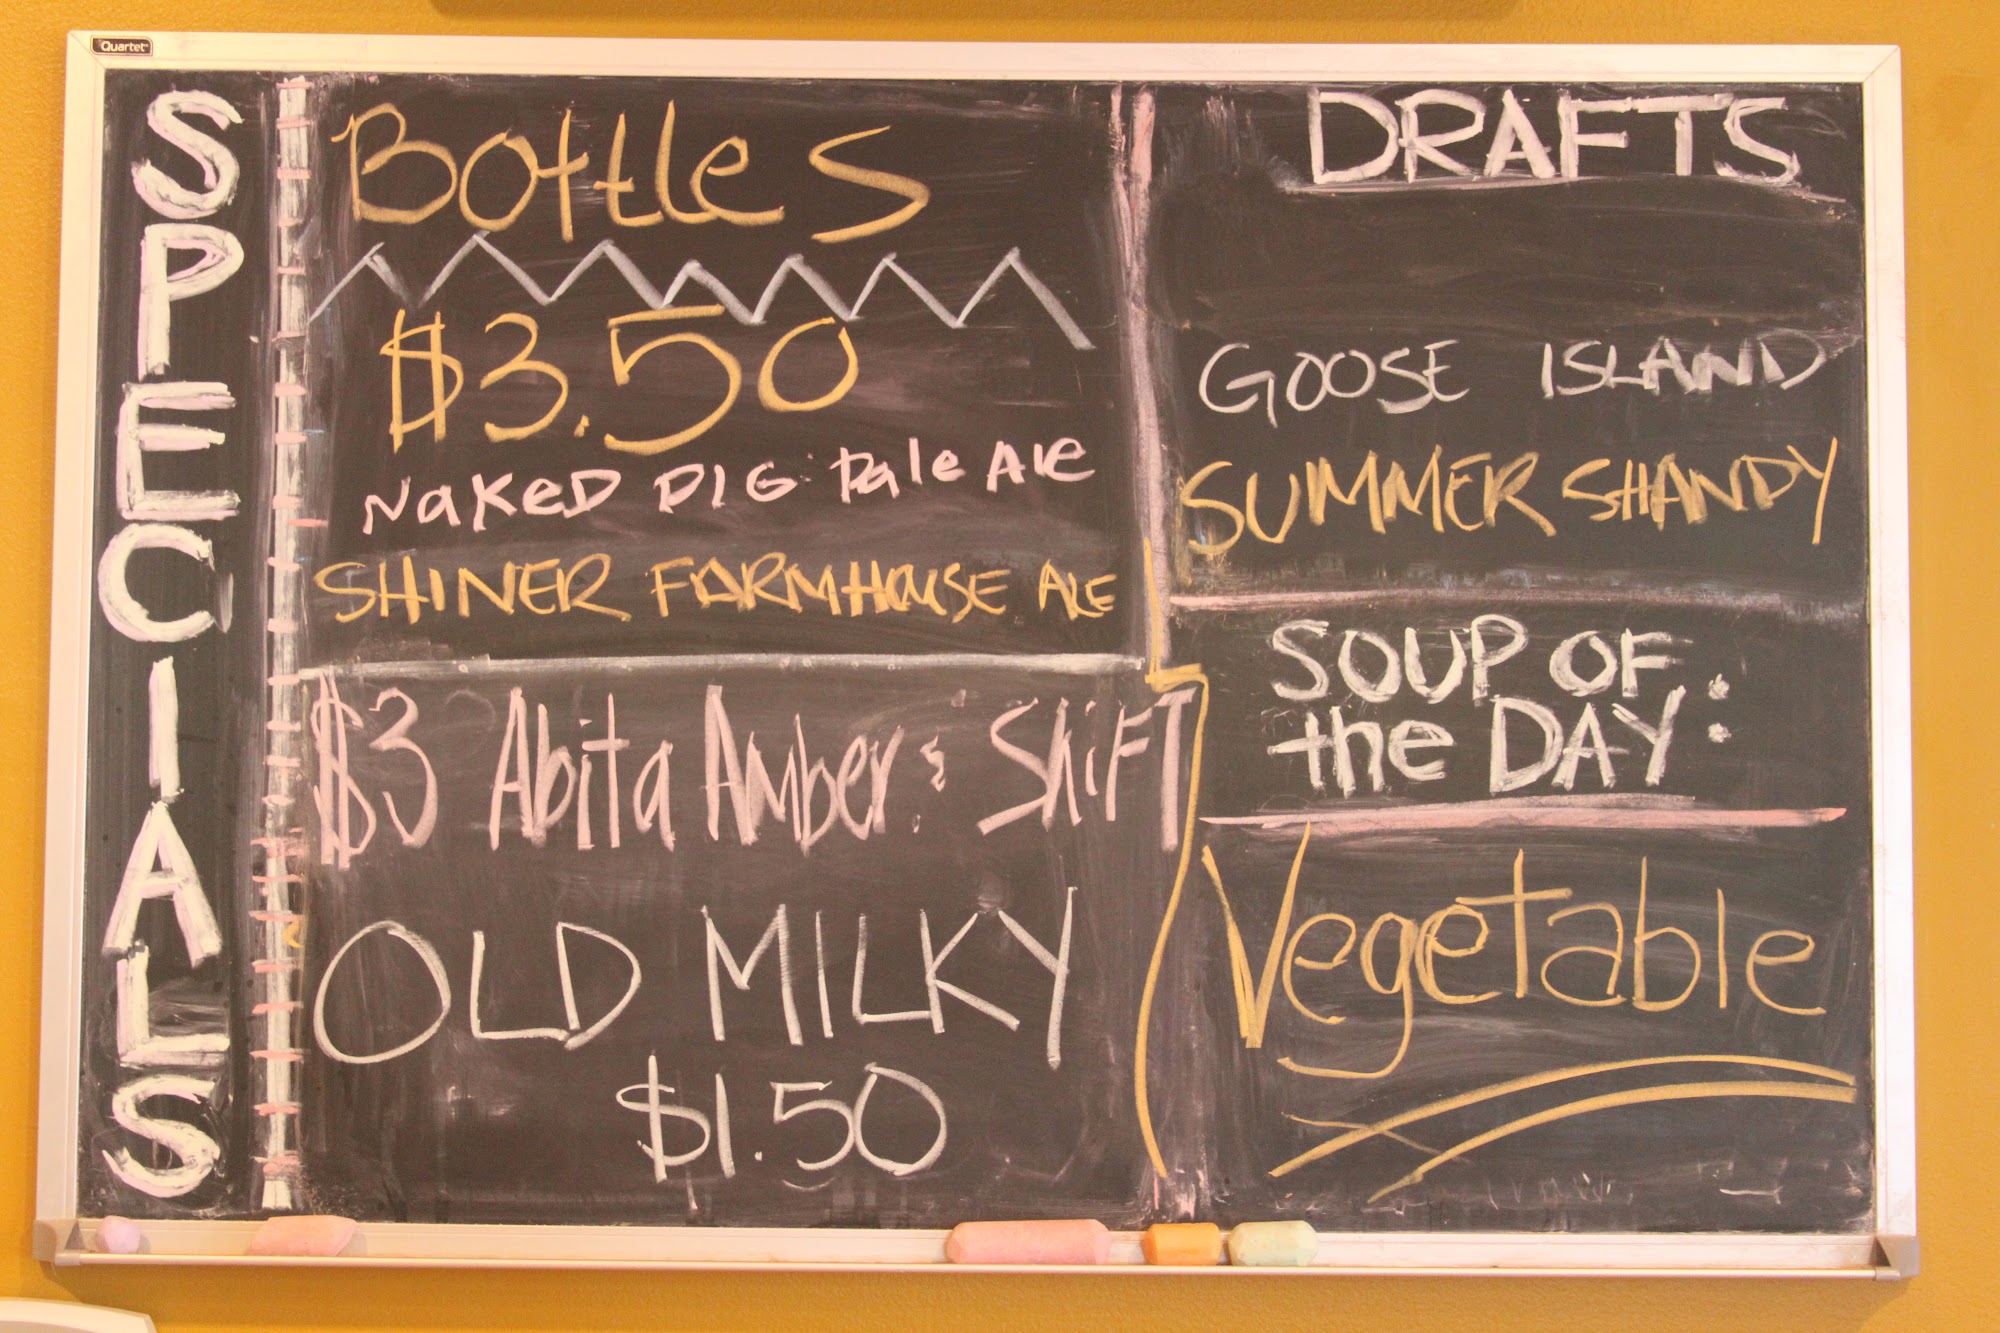 Quartet
SPECIALS
Bottles
$3.50
NaKeD PIG Pale Ale
SHINER FARMHOUSE ALE
$3 Abita Amber & ShiFT
OLD MILKY
$1.50
DRAFTS
GOOSE ISLAND
SUMMER SHANDY
SOUP OF
the DAY:
Vegetable